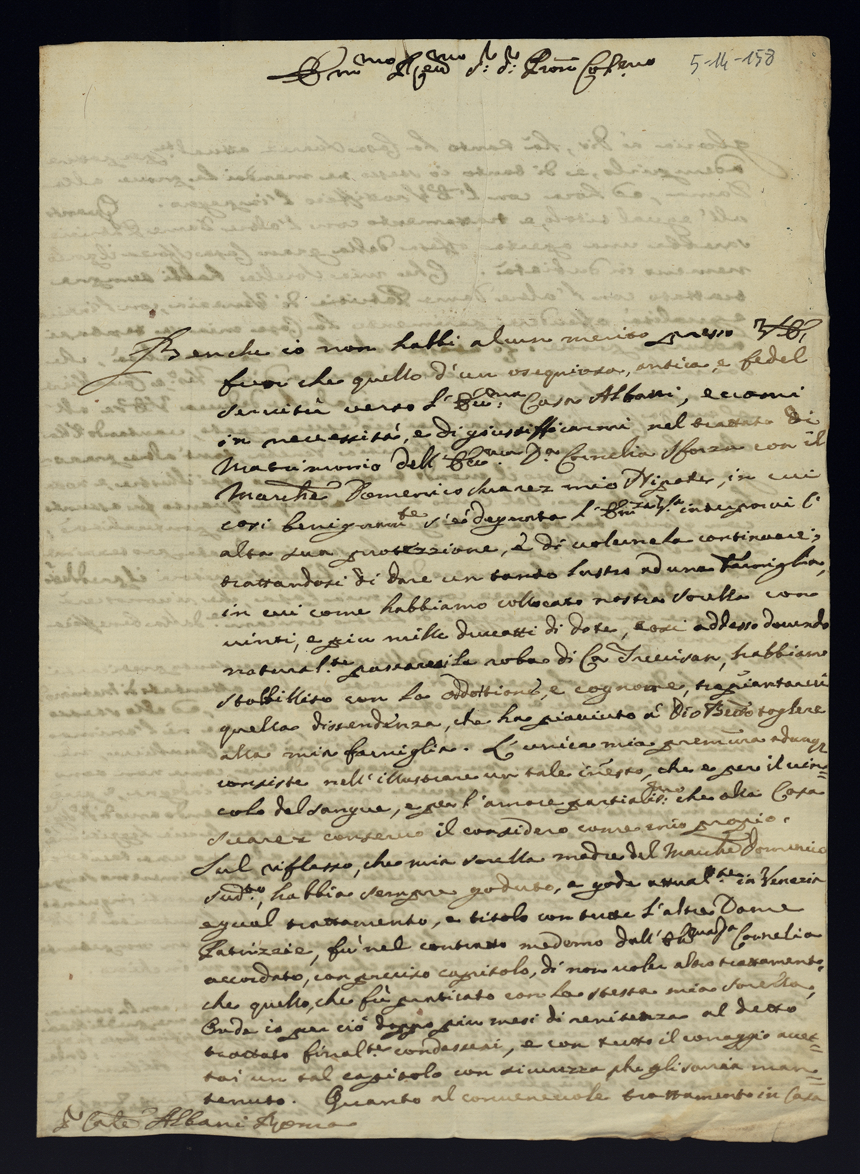 Em.mo Rev.mo S.r S.r Pron Col.mo
5-14-158
Benche io non habbi alcun merito presso V.E.
fuor che quello d'un ossequiosa, antica, e fedel
servitù verso l'Ecc.ma Casa Albani, eccomi
in necessità, e di giustifficarmi nel trattato di
Matrimonio dell'Ecc.ma D.a Cornelia Sforza con il
Marche Domenico Suarez mio Nipote, in cui
cosi benignam.te s'è degnata l'Em.za V.ra interporvi l'
alta sua protezzione, e di volermela continuare;
trattandosi di dare un tanto lustro ad una Famiglia,
in cui come habbiamo collocato nostra sorella con
vinti, e più mille duccatti di dote, così adesso dovendo
natural.te passare le robbe di Ca Trevisan, habbiamo
stabillito con la addottione, e cognome, trapiantarvi
quella dissendenza, che ha piaciuto à Dio Bened.to togliere
alla mia famiglia. L'unica mia premura adunq.
consiste nell'illustrare un tale inesto, che e per il vin=
colo del sangue, e per l'amore partialis.mo che alla Casa
Suarez conservo il considero come mio proprio.
Sul riflesso, che mia sorella madre del Marche Domenico
sud.to, habbia sempre goduto, e gode attual.te in Venezia
egual trattamento, e titolo con tutte l'altre Dame
Patrizzie, fù nel contratto medemo dall' Cornelia
accordato, con preciso capitolo, di non voler altro trattamento,
che quello, che fù praticato con la stessa mia sorella,
Onde io per ciò doppo più mesi di renitenza al detto
trattato final.te condessesi, e con tutto il coraggio accet=
tai un tal capitolo con sicurezza che gli saria man=
tenuto. Quanto al convenevole trattamento in Casa
S.r Card.e Albani Roma